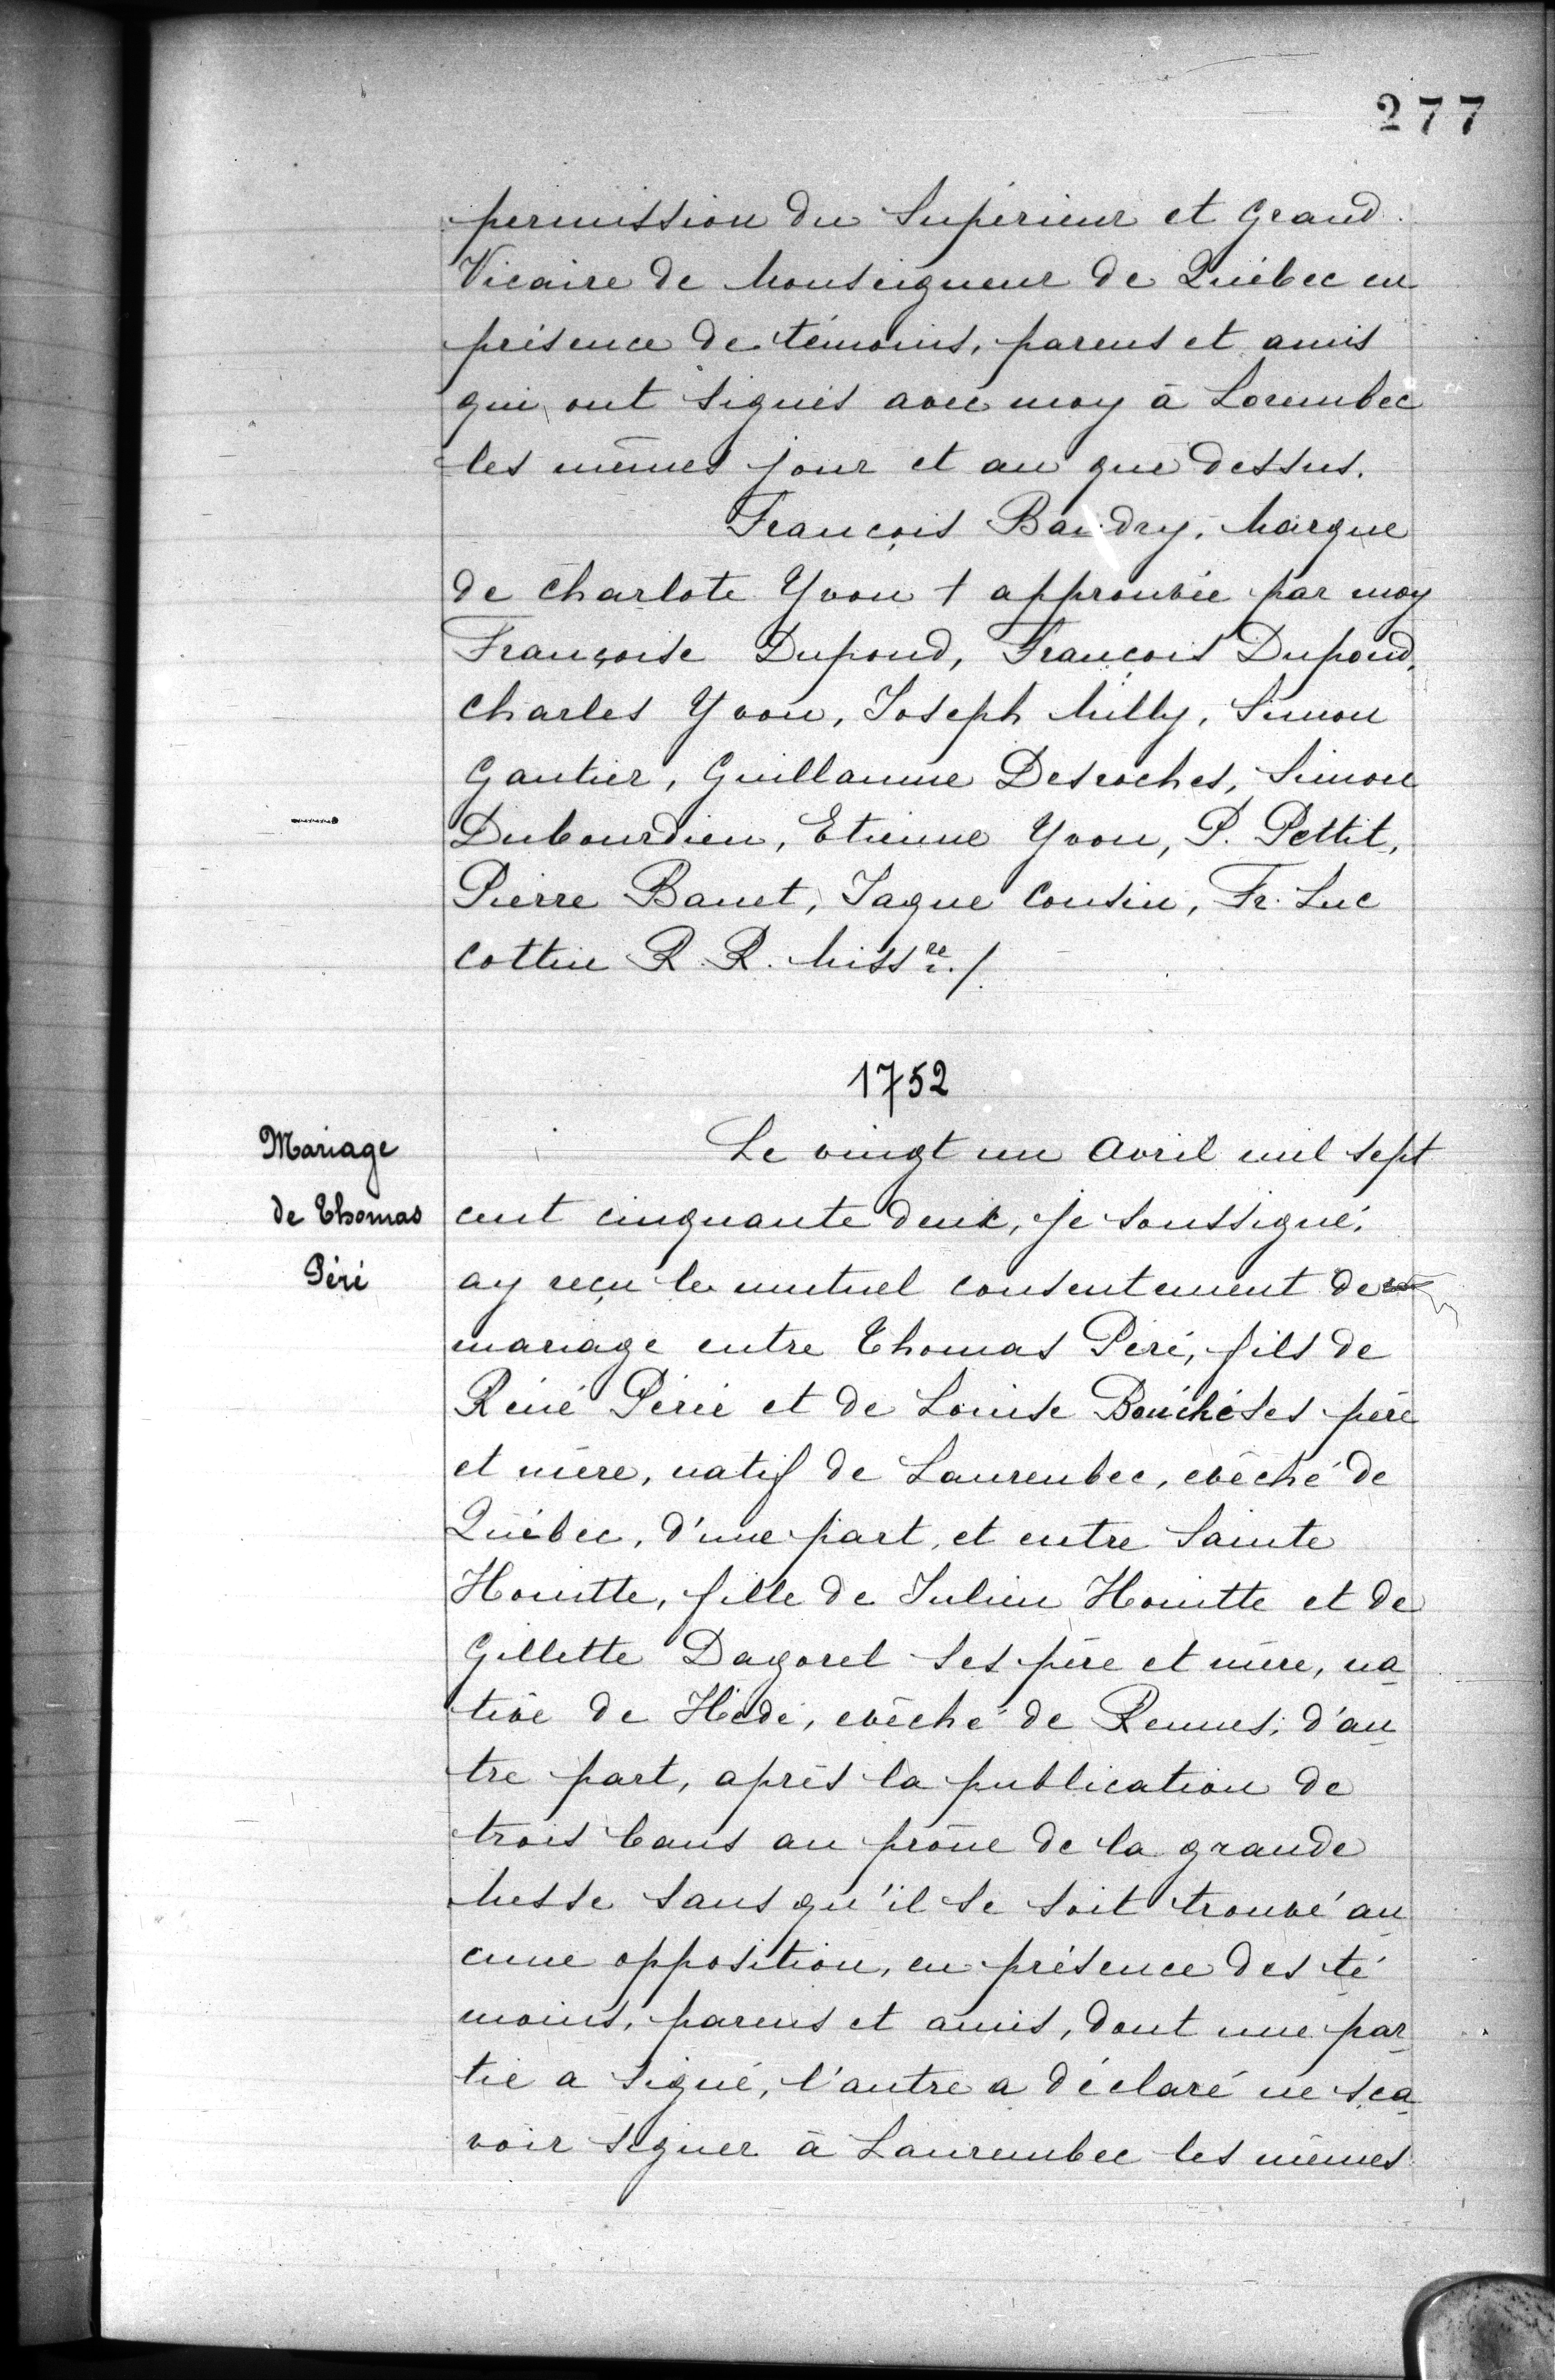 277
permission du Supérieur et Grand
Vicaire de Monseigneur de Québec en
présence de témoins, parens et amis
qui ont signés avec moy à Lorembec
les mêmes jour et an que dessus.
François Baudry, Marque
de Charlote Yvon + approuvée par moy
Françoise Dupond, François Dupond,
Charles Yvon, Joseph Milly, Simon
Gautier, Guillaume Desroches, Simon
Dubourdieu, Etienne Yvon, P. Pettit,
Pierre Banet, Jaque Cousin, Fr. Luc
Cottin R. R. Miss.re /.
1752
Mariage
de Thomas
Péré
Le vingt un Avril mil sept
cent cinquante deux, je soussigné,
ay reçu le mutuel consentement de
mariage entre Thomas Péré, fils de
Réné Périé et de Louise Bouché ses père
et mère, natif de Laurenbec, evêché de
Québec, d'une part, et entre Sainte
Houitte, fille de Julien Houitte et de
Gillette Dagorel ses père et mère, na
tive de Hédé, evêché de Rennes, d'au
tre part, après la publication de
trois bans au prône de la grande
Messe sans qu'il se soit trouvé au
cune opposition, en présence des té
moins, parens et amis, dont une par
tie a signé, l'autre a déclaré ne sça
voir signer à Laurembec les mêmes